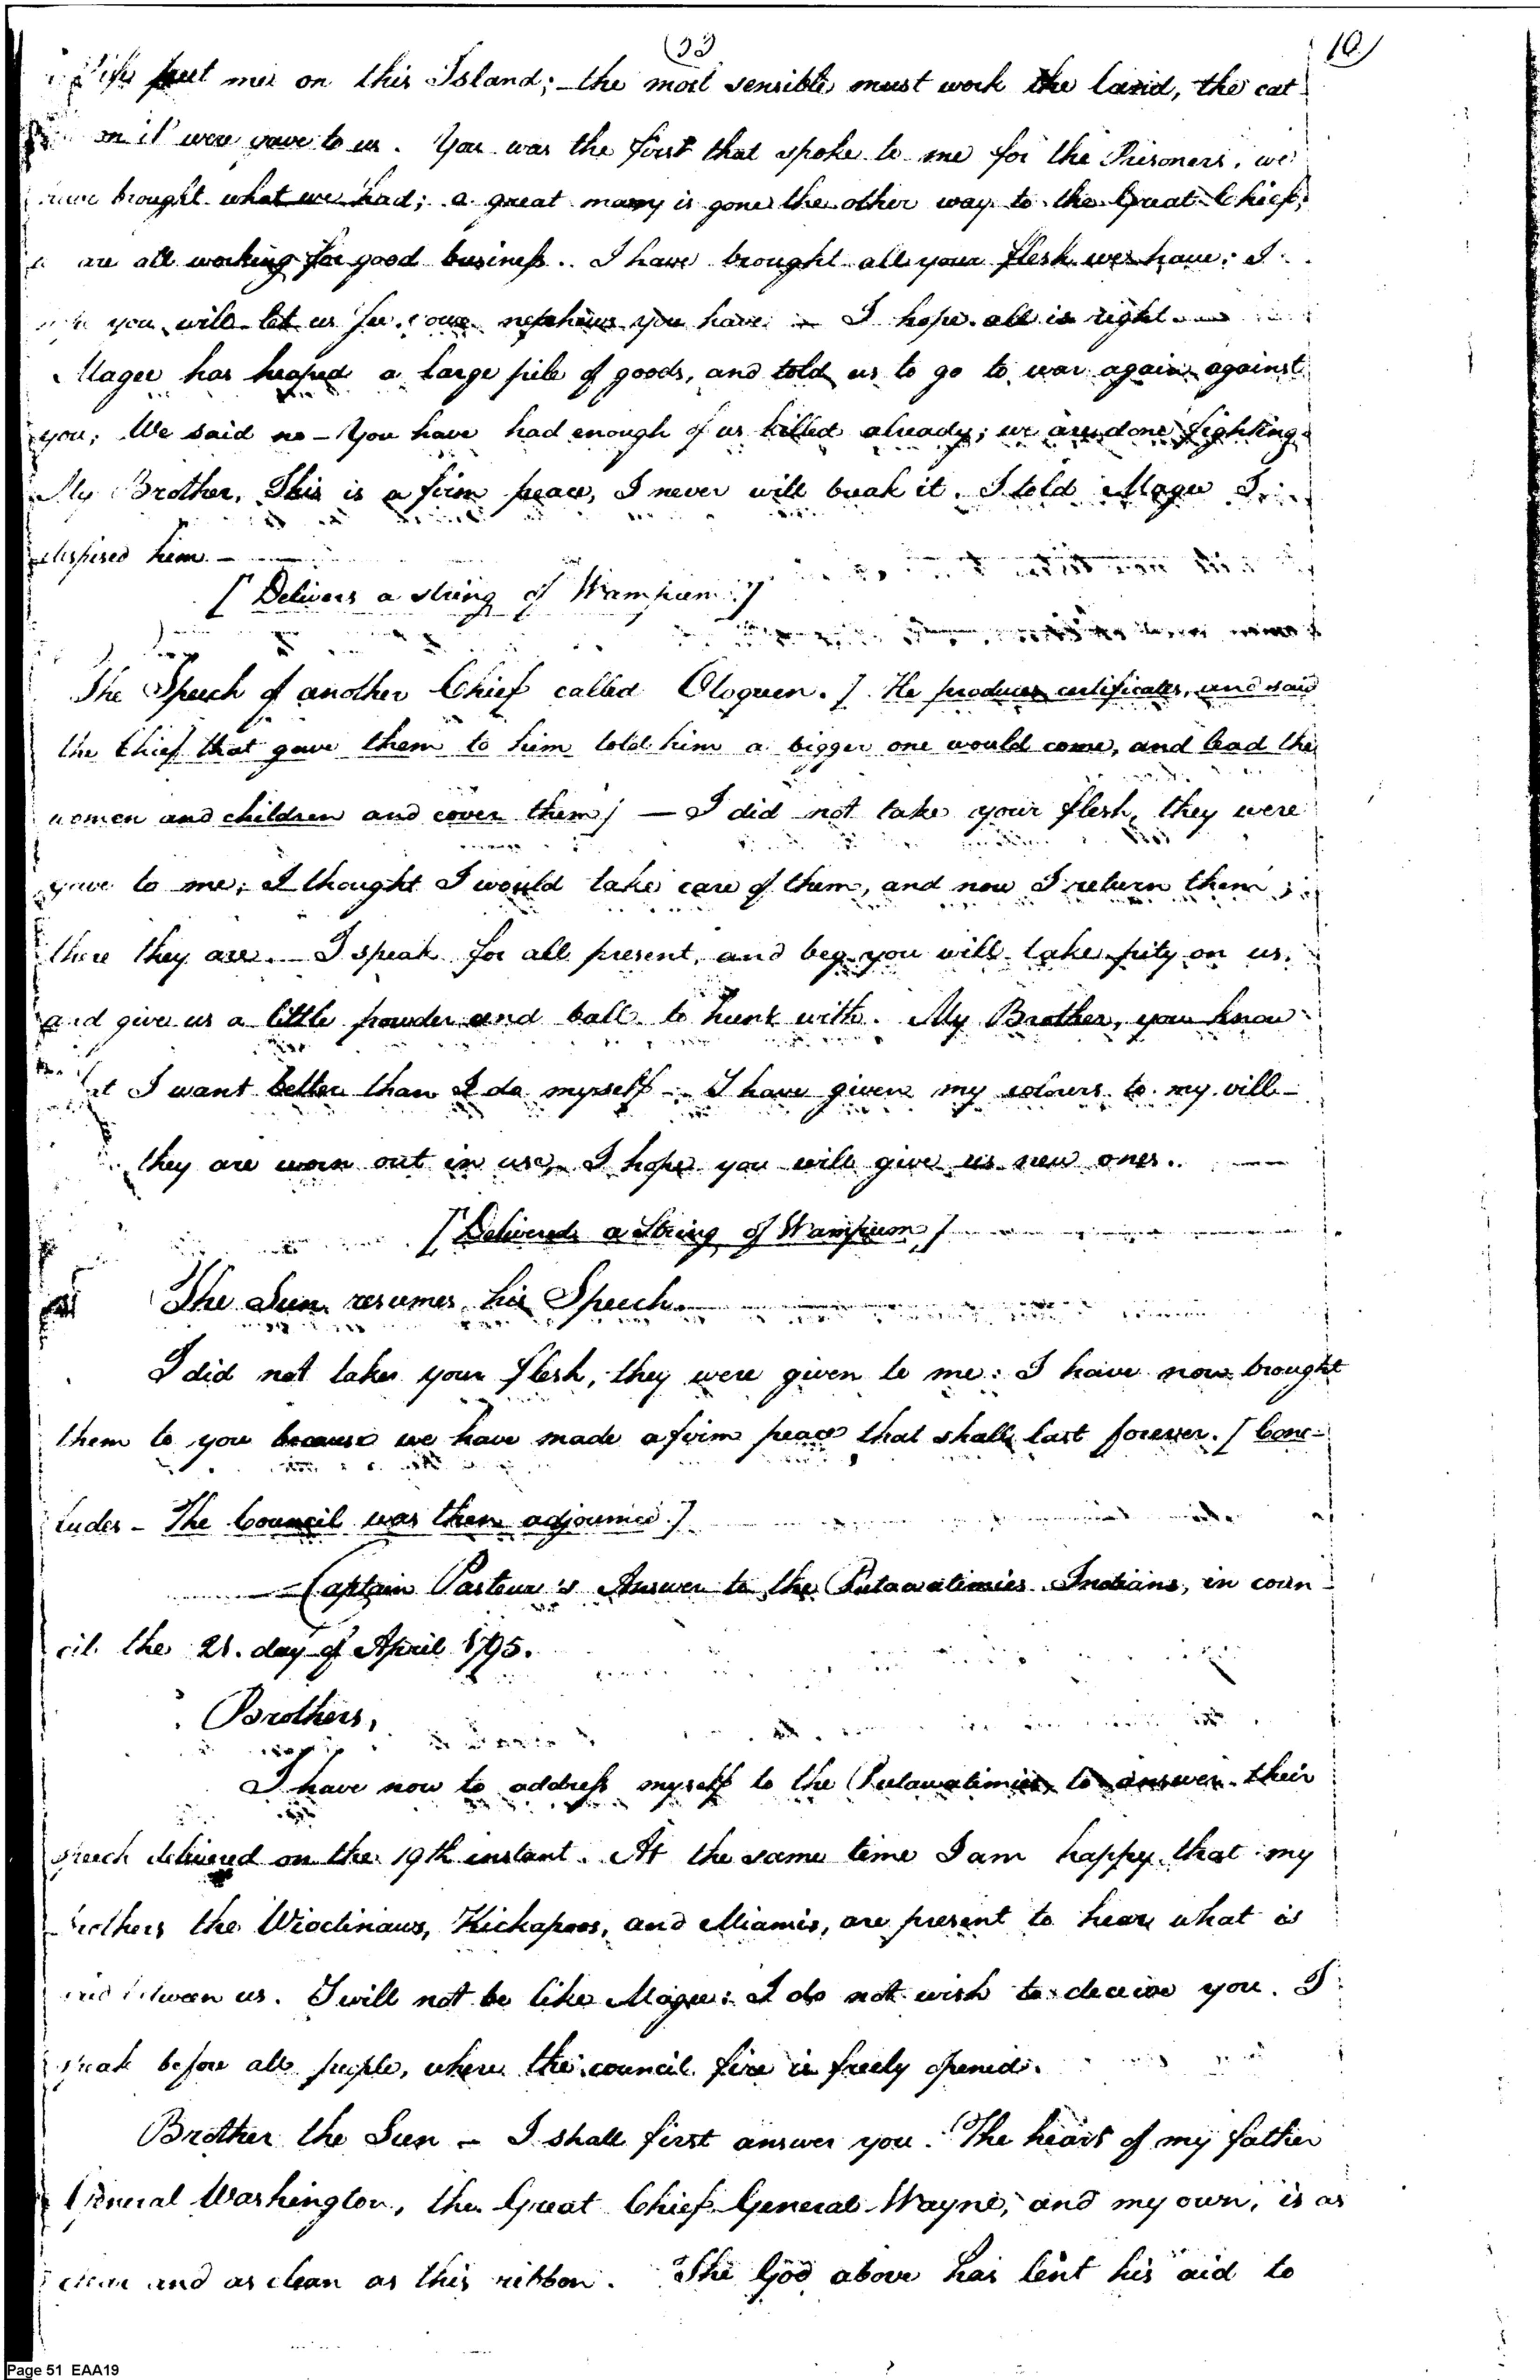 (33)
10)
put me on this Island; - the most sensible must work the land, the cat
on it were gave to us. You was the first that spoke to me for the Prisoners, we
have brought what we had; a great many is gone the other way to the Great Chief,
are all working for good business.. I have brought all your flesh we have; I
you will let us see our nephews you have - I hope all is right.
Magee has heaped a large pile of goods, and told us to go to war again against
you; We said no - You have had enough of us killed already; we are done fighting.
My Brother, This is a firm peace, I never will break it. I told Magee I
dispised him. -
[Delivers a string of Wampum.]
The Speech of another Chief called Oloquen.] He produces certificates, and said
the Chief that gave them to him told him a bigger one would come, and lead the
women and children and cover them] - I did not take your flesh, they were
gave to me; I thought I would take care of them, and now I return them;
there they are. - I speak for all present, and beg you will take pity on us,
and give us a little powder and ball to hunt with. My Brother, you know
I want better than I do myself - I have given my colours to my vill-
they are worn out in use, I hope you will give us new ones.
[Delivered a String of Wampum]
The Sun resumes his Speech
I did not take your flesh, they were given to me: I have now brought
them to you because we have made a firm peace that shall last forever. [Conc-
ludes - The Council was then adjourned.]
Captain Pasteur's Answer to the Putawatimies Indians, in coun-
cil the 21. day of April 1795.
Brothers,
I have now to address myself to the Putawatimies to answer their
speech delivered on the 19th instant. At the same time I am happy that my
brothers the Wiactinaws, Kickapoos, and Miamis, are present to hear what is
said between us. I will not be like Magee: I do not wish to deceive you. I
speak before all people, where the council fire is freely opened.
Brother the Sun - I shall first answer you. The heart of my father
General Washington, the Great Chief General Wayne, and my own, is as
clear and as clean as this ribbon. The God above has lent his aid to
Page 51 EAA19